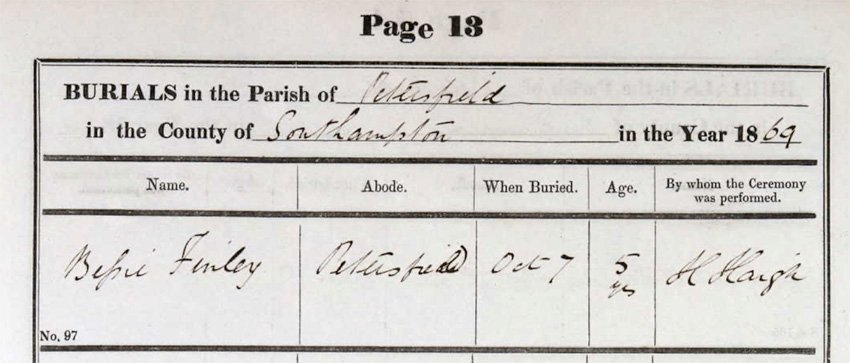 Page 13
BURIALS in the Parish of Petersfield
in the County of Southampton in the Year 1869
Name. Abode. When Buried. Age. By whom the Ceremony
was performed.
Bessie Finley Petersfield Oct 7 5 H Haigh
yrs
No. 97